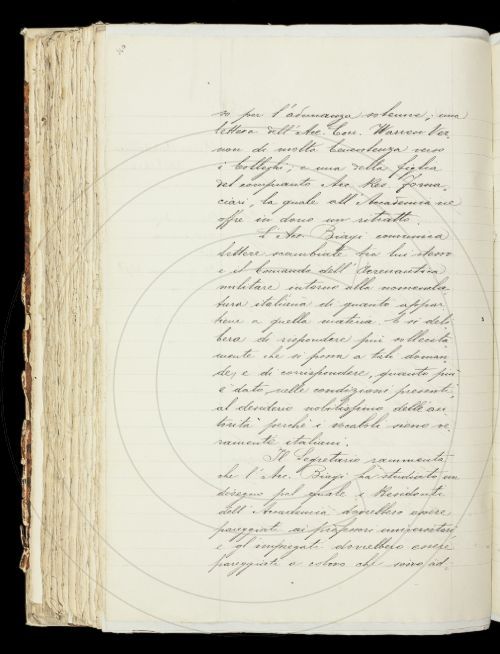 so per l'adunanza solenne; una
lettera dell'Acc. Corr. Warren Ver-
non di molta benevolenza verso
i Colleghi; e una della figlia
del compianto Acc. Res. Forna-
ciari, la quale all'Accademia ne
offre in dono un ritratto.
L'Acc. Biagi comunica
lettere scambiate tra lui stesso
e il Comando dell'Aeronautica
militare intorno alla nomencla-
tura italiana di quanto appar-
tiene a quella materia. E si deli-
bera di rispondere più sollecita-
mente che si possa a tali doman-
de, e di corrispondere, quanto più
è dato, nelle condizioni presenti,
al desiderio nobilissimo delle au-
torità perchè i vocaboli sieno ve-
ramente italiani.
Il Segretario rammenta
che l'Acc. Biagi ha studiato un
disegno pel quale i Residenti
dell'Accademia dovrebbero essere
pareggiati ai professori universitari
e gl'impiegati dovrebbero essere
pareggiati a coloro che sono ad-